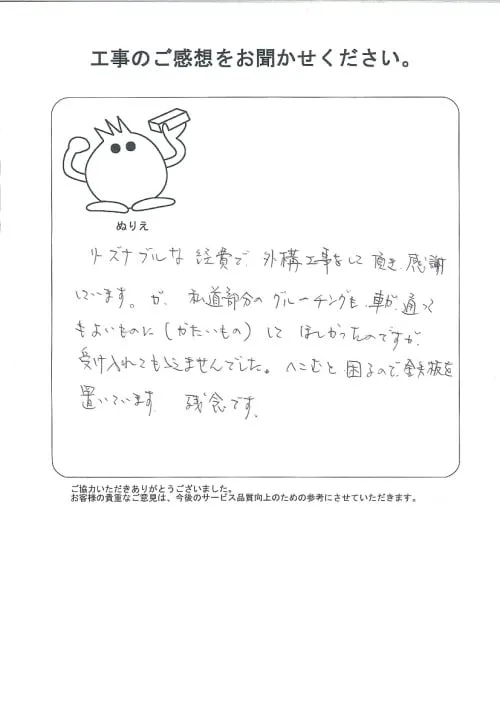 工事のご感想をお聞かせください。
ぬりえ
リーズナブルな 経費で、外構工事をして 頂き、感謝
しています。が、私道部分の グルーチングも、車が、通って
もよいものに (かたいもの) して ほしかったのですが、
受け入れてもらえませんでした。へこむと 困るので、鉄板を
置いています。 残念です。
ご協力いただきありがとうございました。
お客様の貴重なご意見は、今後のサービス品質向上のための参考にさせていただきます。